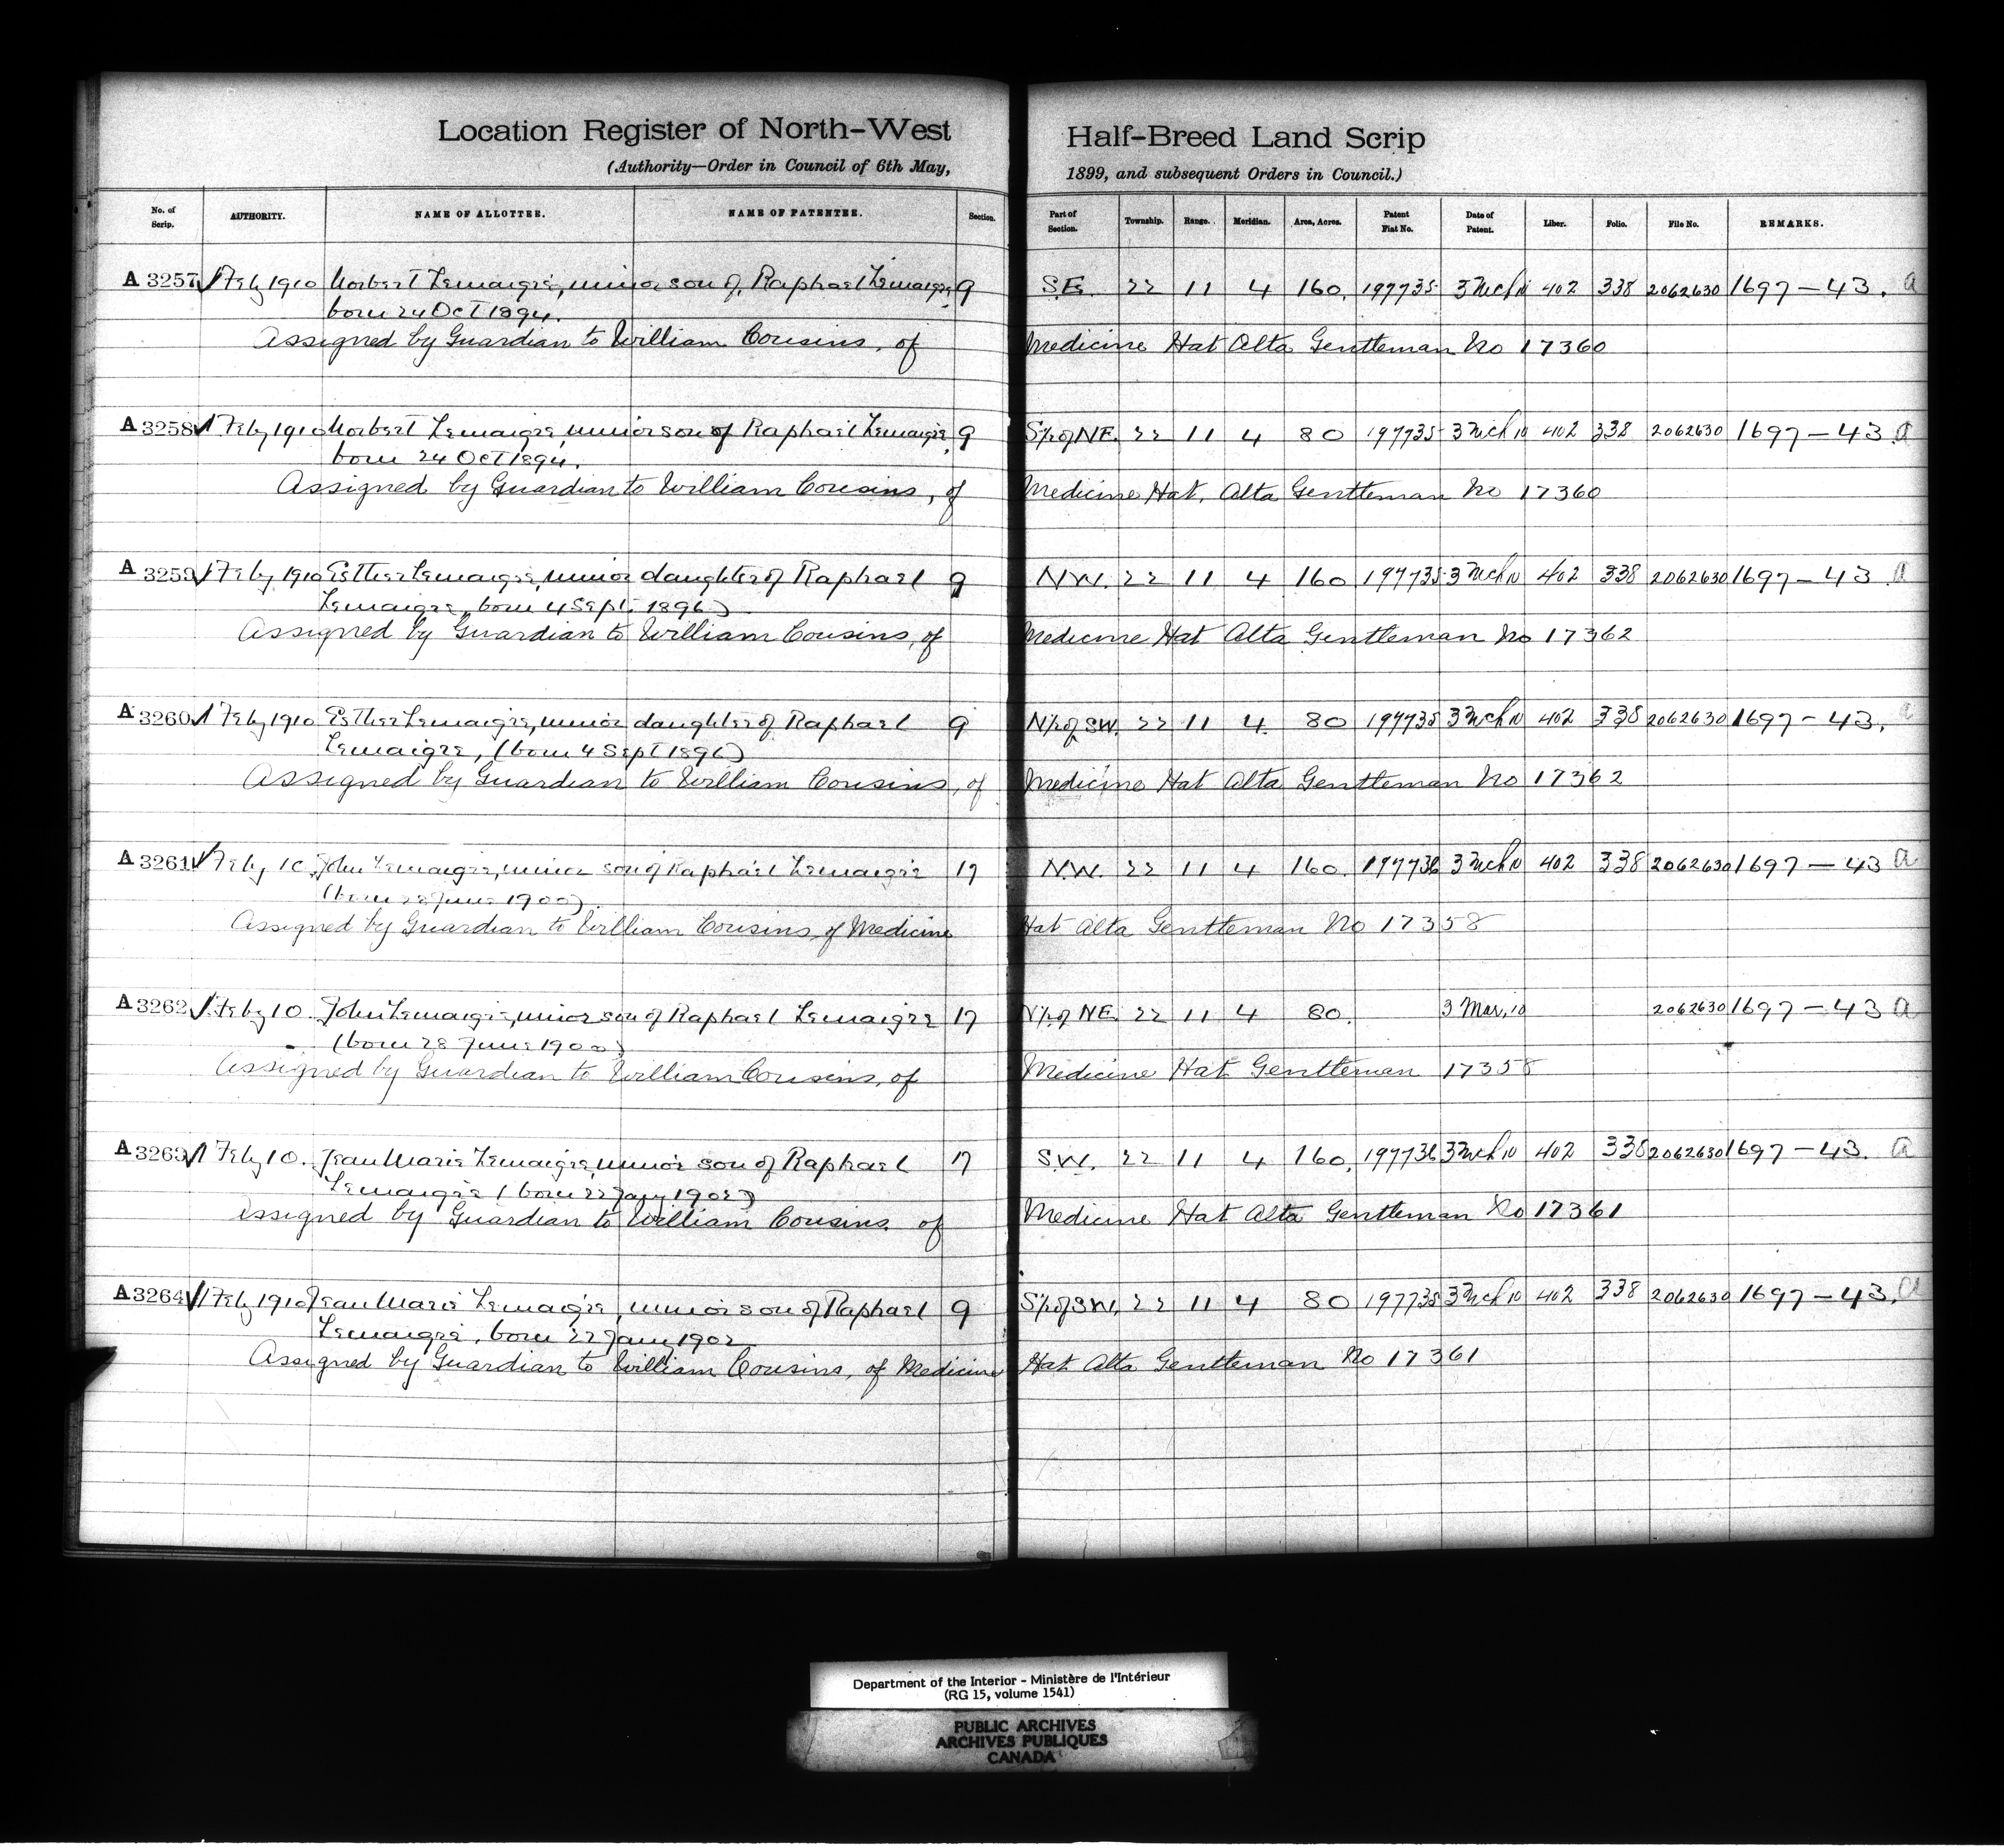 Location Register of North-West Half-Breed Land Scrip
(Authority—Order in Council of 6th May, 1899, and subsequent Orders in Council.)
No. of Scrip. AUTHORITY. NAME OF ALLOTTEE. NAME OF PATENTEE. Section. Part of Section. Township. Range. Meridian. Area, Acres. Patent Fiat No. Date of Patent. Liber. Folio. File No. REMARKS.
A 3257 1 Feby 1910 Norbert Lemaigre, minor son of Raphael Lemaigre, 9 S.E. 22 11 4 160. 197735 3 Mch 10 402 338 2062630 1697-43. a
born 24 Oct 1894.
Assigned by Guardian to William Cousins, of Medicine Hat Alta Gentleman No 17360
A 3258 1 Feby 1910 Norbert Lemaigre, minor son of Raphael Lemaigre, 9 S½ of NE. 22 11 4 80 197735 3 Mch 10 402 338 2062630 1697-43. a
born 24 Oct 1894.
Assigned by Guardian to William Cousins, of Medicine Hat, Alta Gentleman No 17360
A 3259 1 Feby 1910 Esther Lemaigre, minor daughter of Raphael 9 N.W. 22 11 4 160 197735 3 Mch 10 402 338 2062630 1697-43 a
Lemaigre, born 4 Sept. 1896)
Assigned by Guardian to William Cousins, of Medicine Hat Alta Gentleman No 17362
A 3260 1 Feby 1910 Esther Lemaigre, minor daughter of Raphael 9 N½ of SW. 22 11 4 80 197735 3 Mch 10 402 338 2062630 1697-43. a
Lemaigre, (born 4 Sept 1896)
Assigned by Guardian to William Cousins, of Medicine Hat Alta Gentleman No 17362
A 3261 1 Feby 10. John Lemaigre, minor son of Raphael Lemaigre 17 N.W. 22 11 4 160. 197736 3 Mch 10 402 338 2062630 1697-43 a
(born 28 June 1900).
Assigned by Guardian to William Cousins, of Medicine Hat Alta Gentleman No 17358
A 3262 1 Feby 10. John Lemaigre, minor son of Raphael Lemaigre 17 N½ of NE. 22 11 4 80. 3 Mar, 10 2062630 1697-43 a
(born 28 June 1900)
Assigned by Guardian to William Cousins, of Medicine Hat Gentleman 17358
A 3263 1 Feby 10. Jean Marie Lemaigre, minor son of Raphael 17 S.W. 22 11 4 160. 197736 3 Mch 10 402 338 2062630 1697-43. a
Lemaigre (born 22 Jany 1902)
Assigned by Guardian to William Cousins, of Medicine Hat Alta Gentleman No 17361
A 3264 1 Feby 1910 Jean Marie Lemaigre, minor son of Raphael 9 S½ of SW. 22 11 4 80 197735 3 Mch 10 402 338 2062630 1697-43. a
Lemaigre, born 22 Jany 1902
Assigned by Guardian to William Cousins, of Medicine Hat Alta Gentleman No 17361
Department of the Interior - Ministère de l'Intérieur
(RG 15, volume 1541)
PUBLIC ARCHIVES
ARCHIVES PUBLIQUES
CANADA